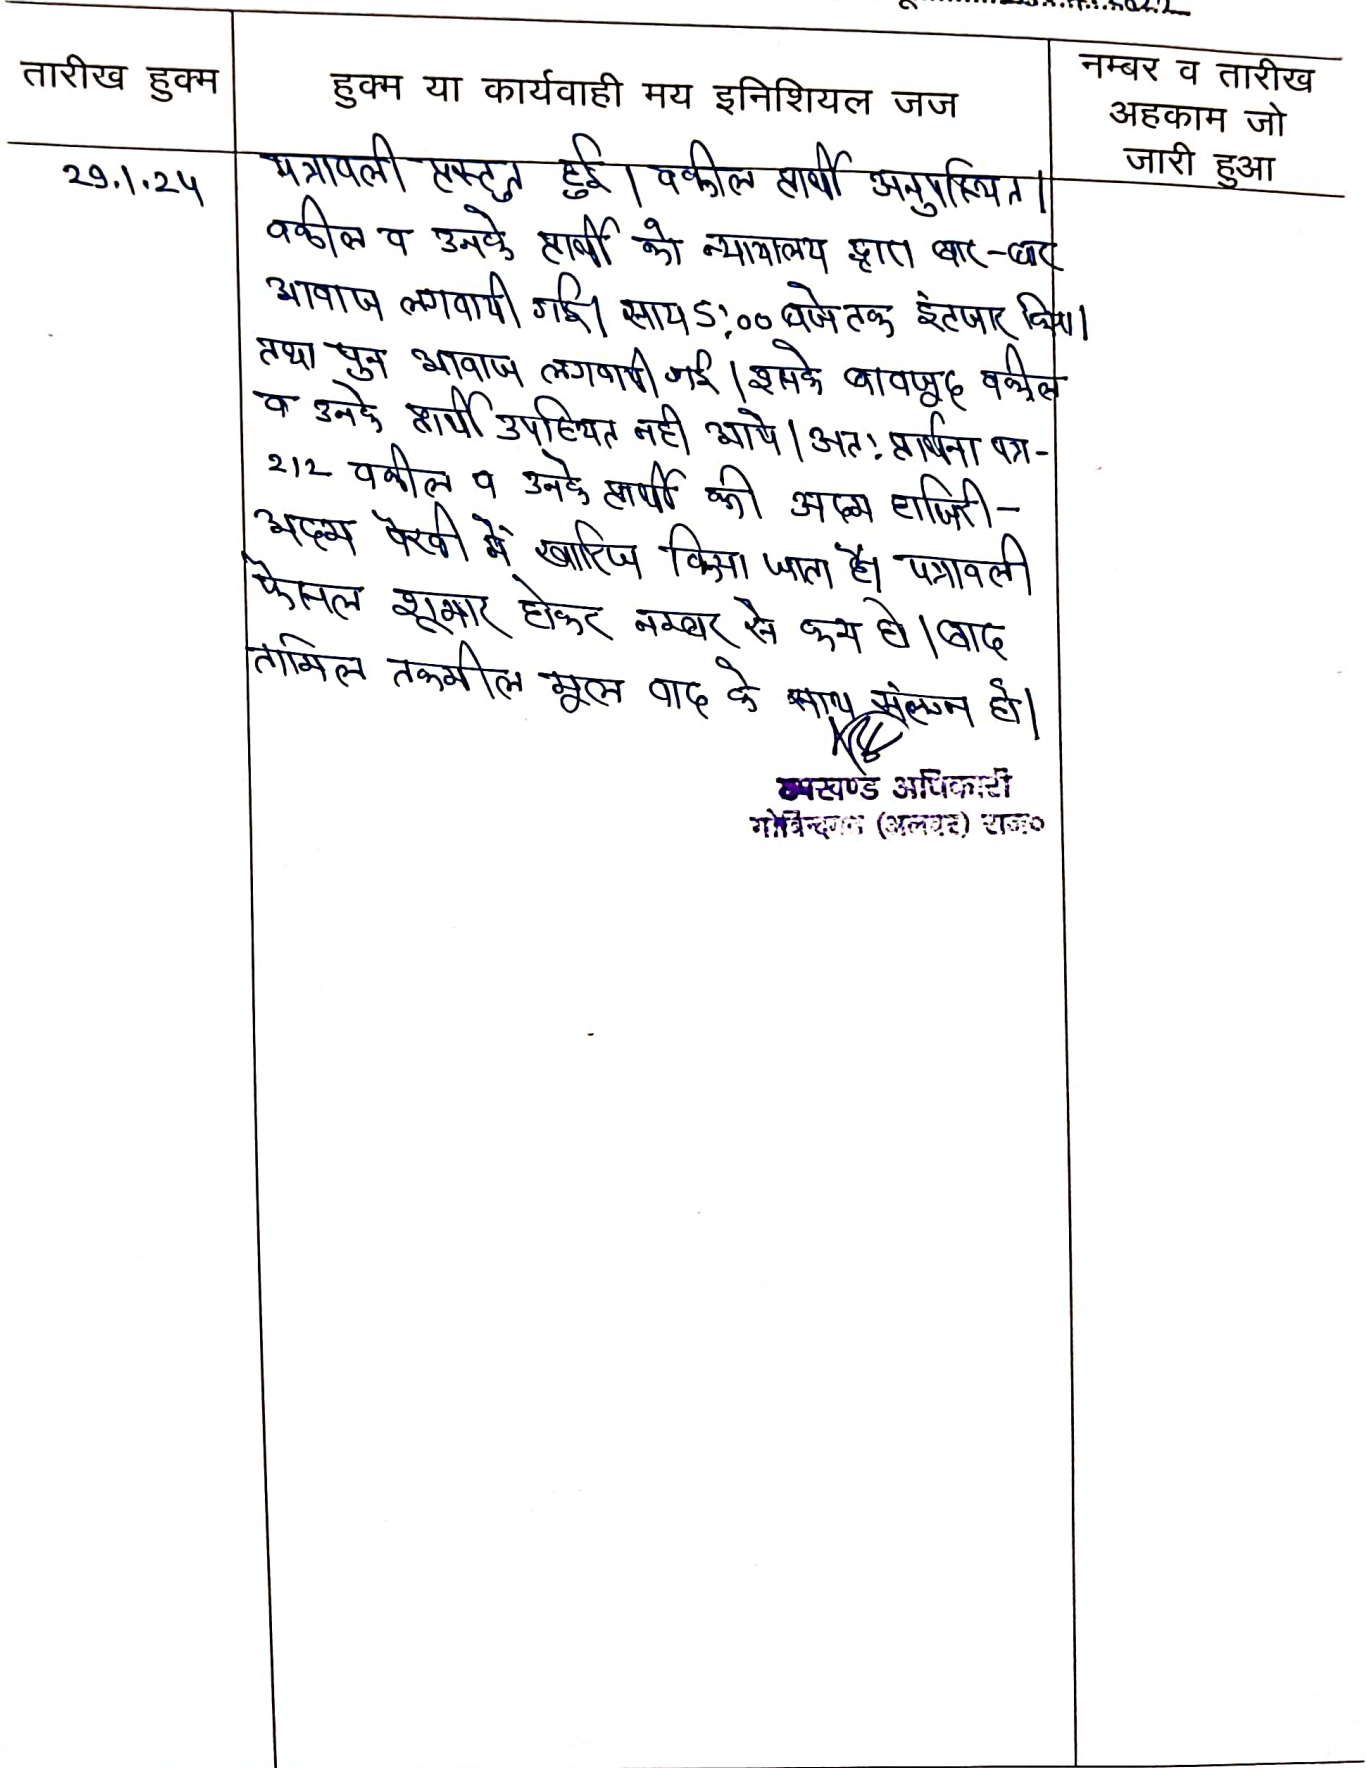 तारीख हुक्म
हुक्म या कार्यवाही मय इनिशियल जज
नम्बर व तारीख
अहकाम जो
जारी हुआ
29.1.24
पत्रावली प्रस्तुत हुई। वकील प्रार्थी अनुपस्थित।
वकील व उनके प्रार्थी को न्यायालय द्वारा बार-बार
आवाज लगवायी गई। साय 5:00 बजे तक इंतजार किया।
तथा पुन आवाज लगवायी गई। इसके बावजूद वकील
व उनके प्रार्थी उपस्थित नही आये। अत: प्रार्थना पत्र-
212 वकील व उनके प्रार्थी की अदम हाजिरी-
अदम पैरवी में खारिज किया जाता है। पत्रावली
फैसल शूमार होकर नम्बर से कम हो। बाद
तामिल तकमील मूल वाद के साथ संलग्न हो।
उपखण्ड अधिकारी
गोविन्दगढ (अलवर) राज०